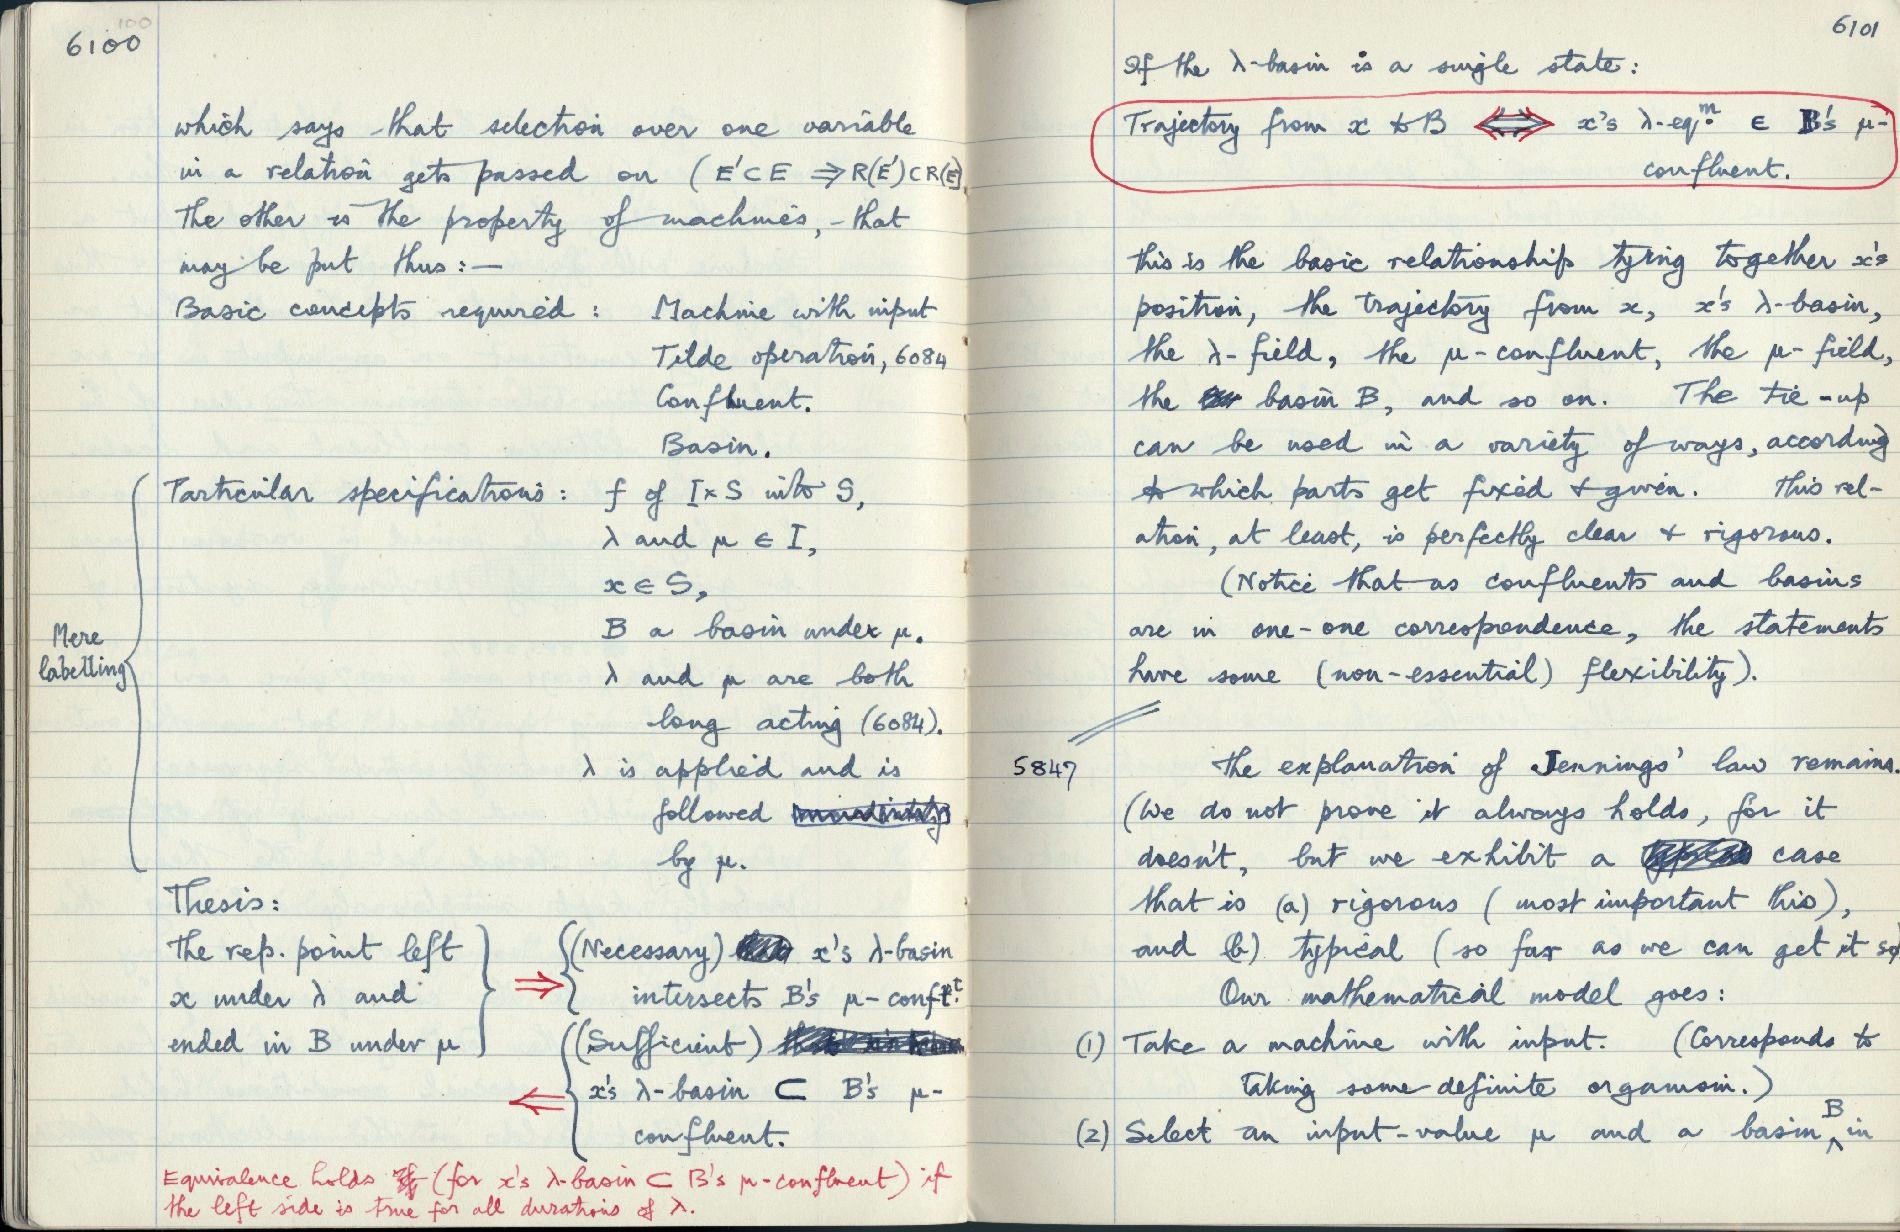 6100
100
which says that selection over one variable
in a relation gets passed on (E'⊂E ⇒ R(E')⊂R(E).
The other is the property of machines, - that
may be put thus:—
Basic concepts required : Machine with input
Tilde operation, 6084
Confluent.
Basin.
Particular specifications : f of I×S into S,
λ and μ ∈ I,
x ∈ S,
B a basin under μ.
Mere
labelling
λ and μ are both
long acting (6084).
λ is applied and is
followed
by μ.
Thesis:
The rep. point left
x under λ and
ended in B under μ
⇒ (Necessary) x's λ-basin
intersects B's μ-conft.
(Sufficient)
⇐ x's λ-basin ⊂ B's μ-
confluent.
Equivalence holds (for x's λ-basin ⊂ B's μ-confluent) if
the left side is true for all durations of λ.
6101
If the λ-basin is a single state:
Trajectory from x to B ⇔ x's λ-eq.m ∈ B's μ-
confluent.
This is the basic relationship tying together x's
position, the trajectory from x, x's λ-basin,
the λ-field, the μ-confluent, the μ-field,
the basin B, and so on. The tie-up
can be used in a variety of ways, according
to which parts get fixed & given. This rel-
ation, at least, is perfectly clear & rigorous.
(Notice that as confluents and basins
are in one-one correspondence, the statements
have some (non-essential) flexibility).
5847 The explanation of Jennings' law remains.
(We do not prove it always holds, for it
doesn't, but we exhibit a case
that is (a) rigorous (most important this),
and (b) typical (so far as we can get it so)
Our mathematical model goes:
(1) Take a machine with input. (Corresponds to
taking some definite organism.)
(2) Select an input-value μ and a basin B in